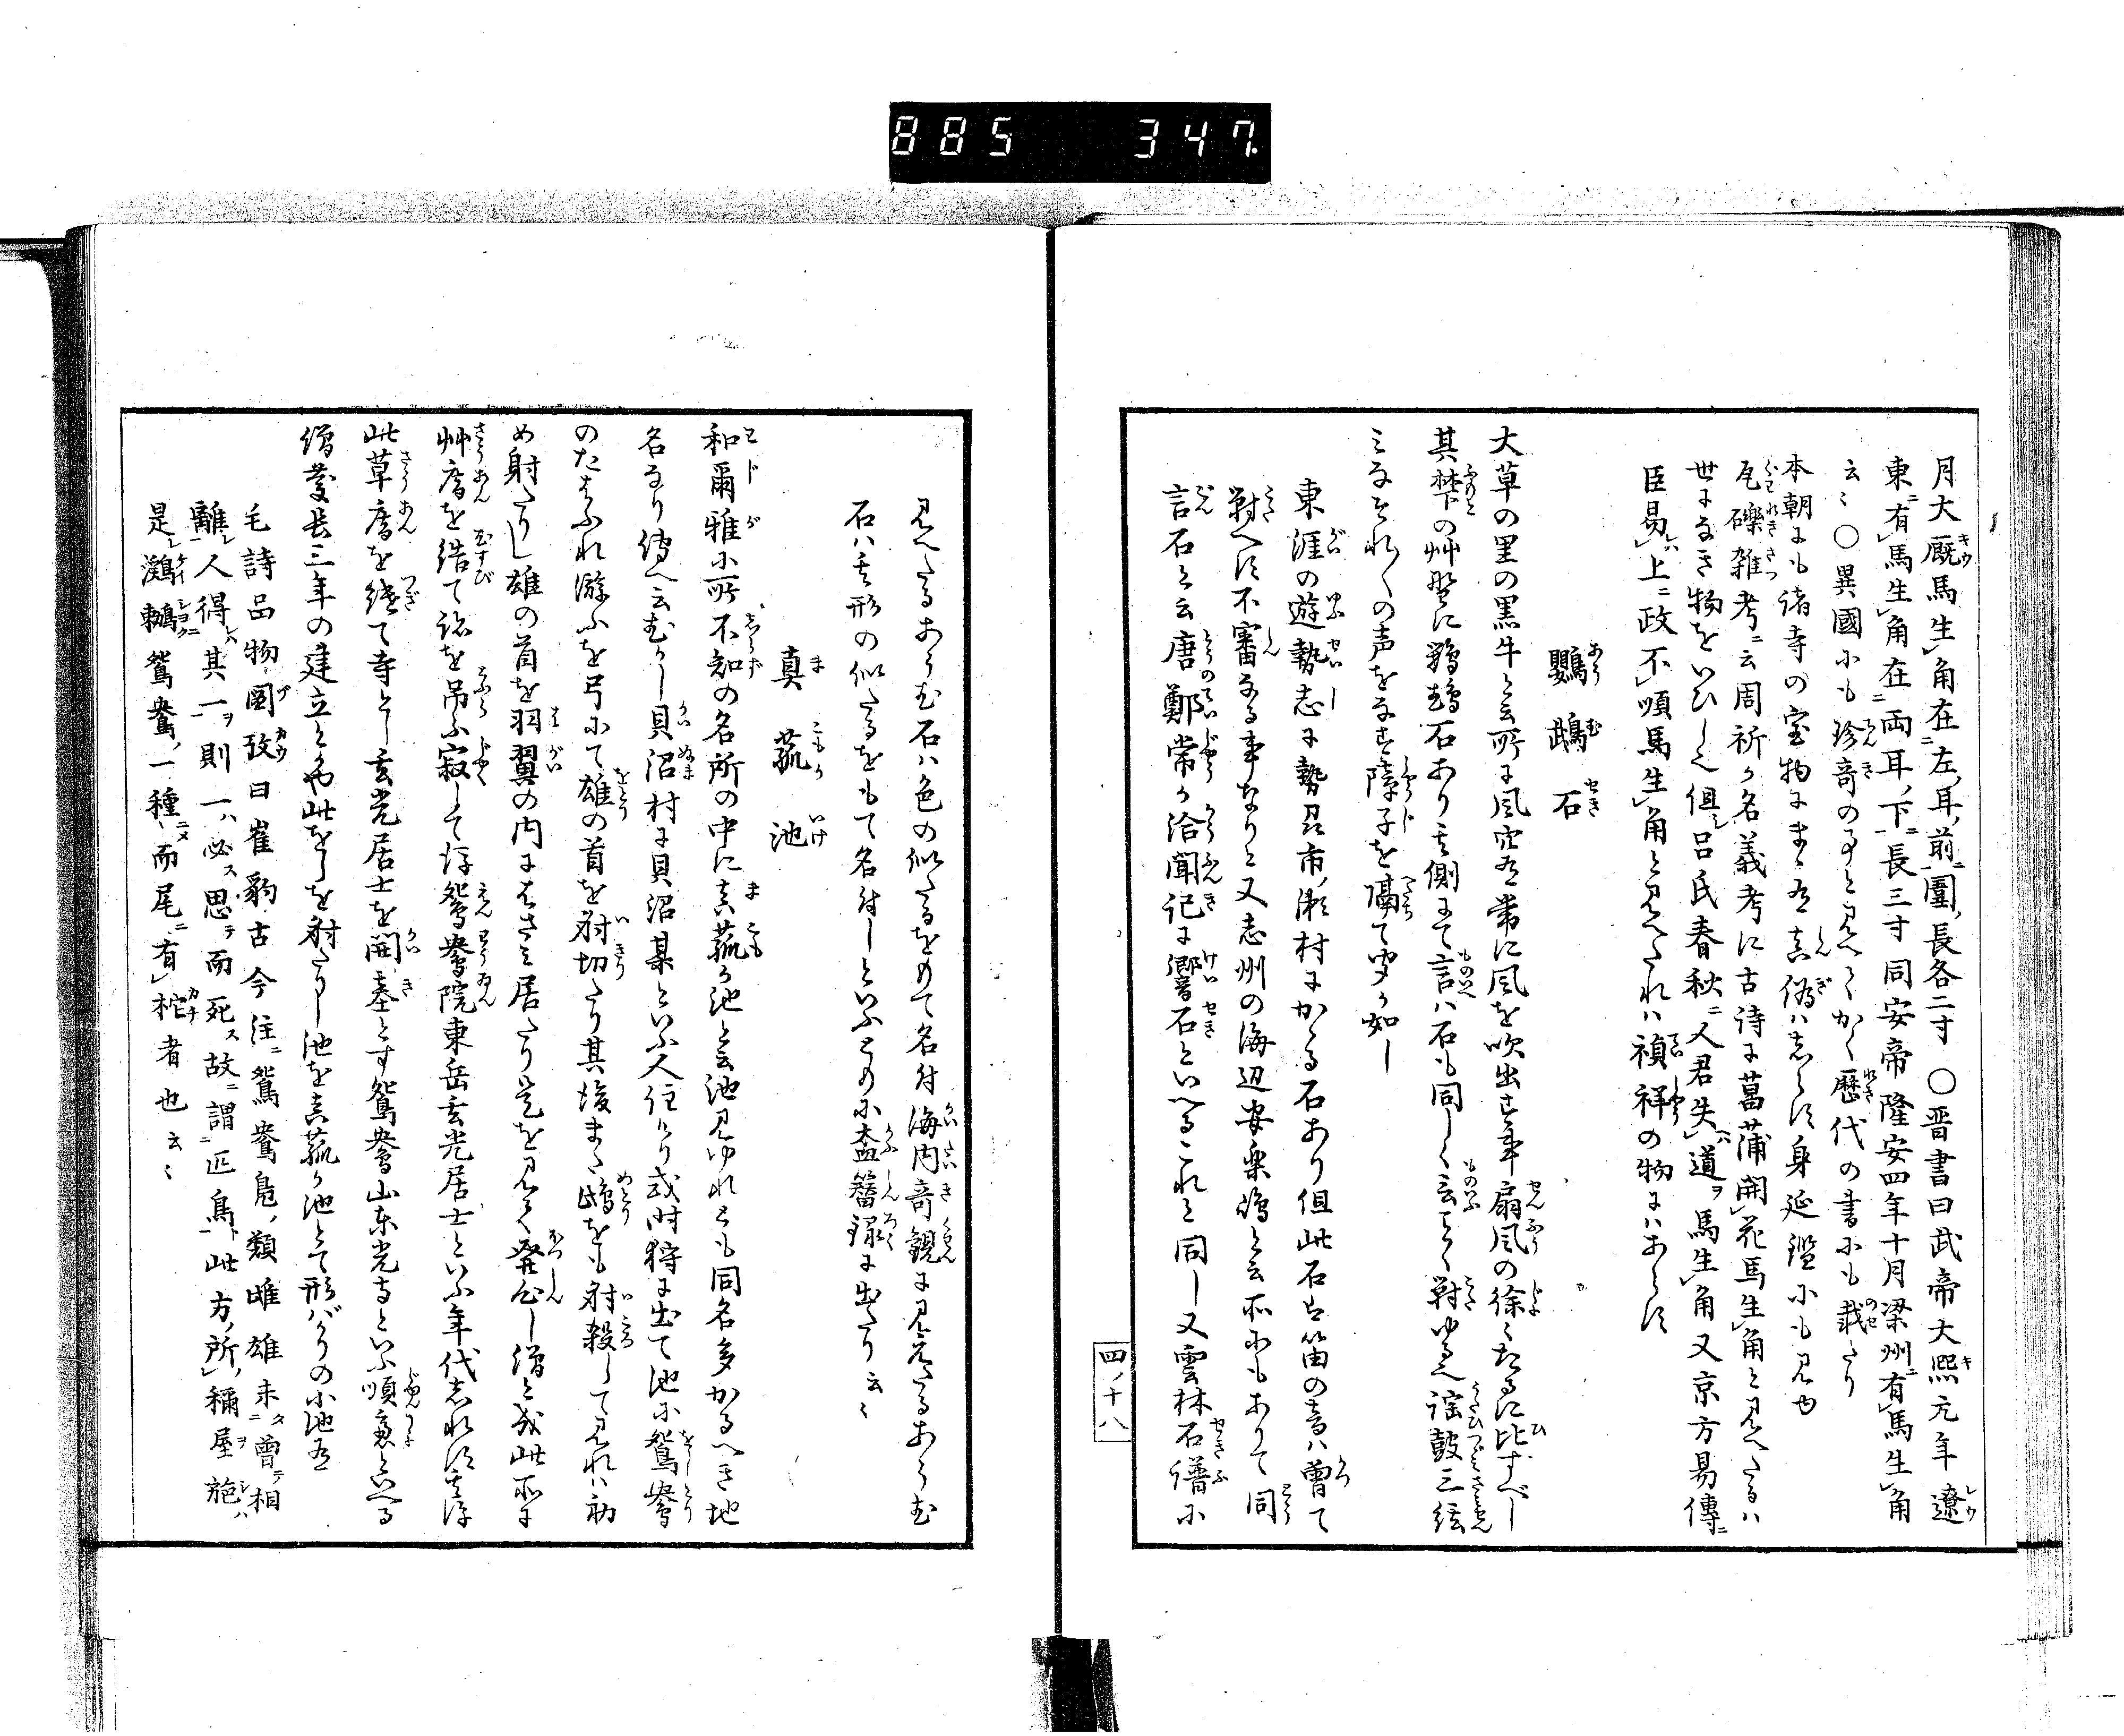 885 347.
月大厩馬生角在左耳前圍長各二寸 〇晋書曰武帝大熙元年遼
東有馬生角在両耳下長三寸同安帝隆安四年十月梁州有馬生角
云〻 〇異國にも珍奇の事と見へてかく歴代の書にも載たり
本朝にも諸寺の宝物にまゝ有真偽ハしらす身延鑑にも見ゆ
瓦礫雑考ニ云周祈か名義考に古詩に菖蒲開花馬生角と見へたるハ
世になき物をいひし也但呂氏春秋ニ人君失道馬生角又京方易傳ニ
臣易上政不順馬生角と見へたれハ禎祥の物にハあらす
鸚鵡石
大草の里の黒牛と云所に風穴有常に風を吹出す事扇風の徐〻たるに比すべし
其梺の艸埜に鸚鵡石あり其側にて言ハ石も同しく言て對ゆる也謡鼓三絃
ミなそれ〳〵の声をなす障子を隔て聞か如し
東涯の遊勢志に勢州市ノ瀬村にかゝる石あり但此石は笛の音ハ曽て
對へす不審なる事なりと又志州の海辺安乗崎と云所にもありて同
言石と云唐鄭常か洽聞記に響石といへるこれと同し又雲林石譜に
四ノ十八
見へたるあうむ石ハ色の似たるをめて名付海内奇観に見えたるあうむ
石ハ其形の似たるをもて名付しといふとの小盍簪録に出たり云〻
真菰池
和爾雅に所不知の名所の中に真菰か池と云池見ゆれとも同名多かるへき地
名なり傳へ云むかし貝沼村に貝沼某といふ人住けり或時狩に出て池に鴛鴦
のたはふれ游ふを弓にて雄の首を射切たり其後また鴫をも射殺して見れハ初
め射たりし雄の首を羽翼の内にはさミ居たり是を見て発心し僧と成此所に
艸庵を結て跡を吊ふ寂して後鴛鴦院東岳玄光居士といふ年代しれす其後
此草庵を継て寺とし玄光居士を開基とす鴛鴦山東光寺といふ順恵といへる
僧慶長三年の建立とかや此をしを射たりし池を真菰か池とて形バかりの小池有
毛詩品物圖攷曰崔豹古今注ニ鴛鴦鳬ノ類雌雄未タ曽テ相
離レ人得レハ其一ヲ則一ハ必ス思テ而死ス故ニ謂ニ匹鳥ト此方ノ所稱屋施ハ
是レ鸂鶒ニ鴛鴦ノ一種ニメ而尾ニ有柁者也云〻